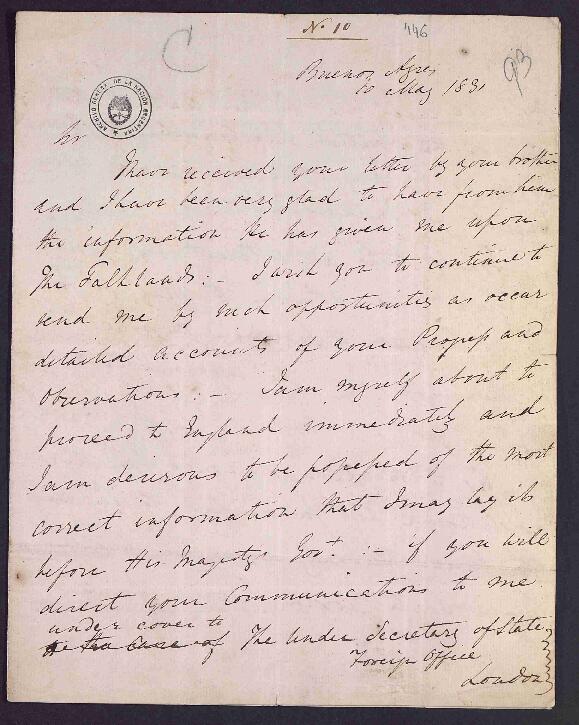 No 10
446
C
93
Buenos Ayres
10 May 1831
ARCHIVO GENERAL DE LA NACION ARGENTINA
Sir
I have received your letter by your brother
and I have been very glad to have from him
the information he has given me upon
the Falklands: – I wish you to continue to
send me by such opportunities as occur
detailed accounts of your Progress and
Observations: – I am myself about to
proceed to England immediately and
I am desirous to be possessed of the most
correct information that I may lay it
before His Majesty's Govt. :– if you will
direct your Communications to me
under cover to
to the care of The Under Secretary of State
Foreign Office
London